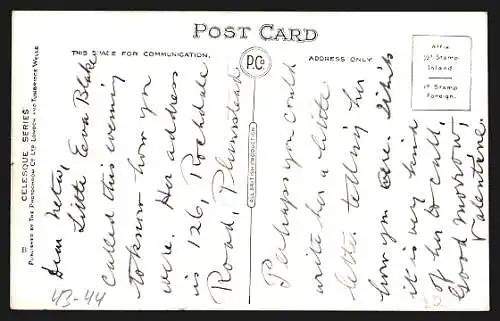 POST CARD
THIS SPACE FOR COMMUNICATION.
ADDRESS ONLY.
P.C.
Affix
½d Stamp
Inland.
1d Stamp
Foreign.
CELESQUE SERIES
PUBLISHED BY THE PHOTOCHROM CO. LTD. LONDON AND TUNBRIDGE WELLS
Dear
Little Eva Blake
called this evening
to know how you
were. Her address
is 126, Rochdale
Road, Plumstead
Perhaps you could
write her a little
letter telling her
how you are.
it is very kind
of her to call.
Good morrow,
Valentine.
43-44